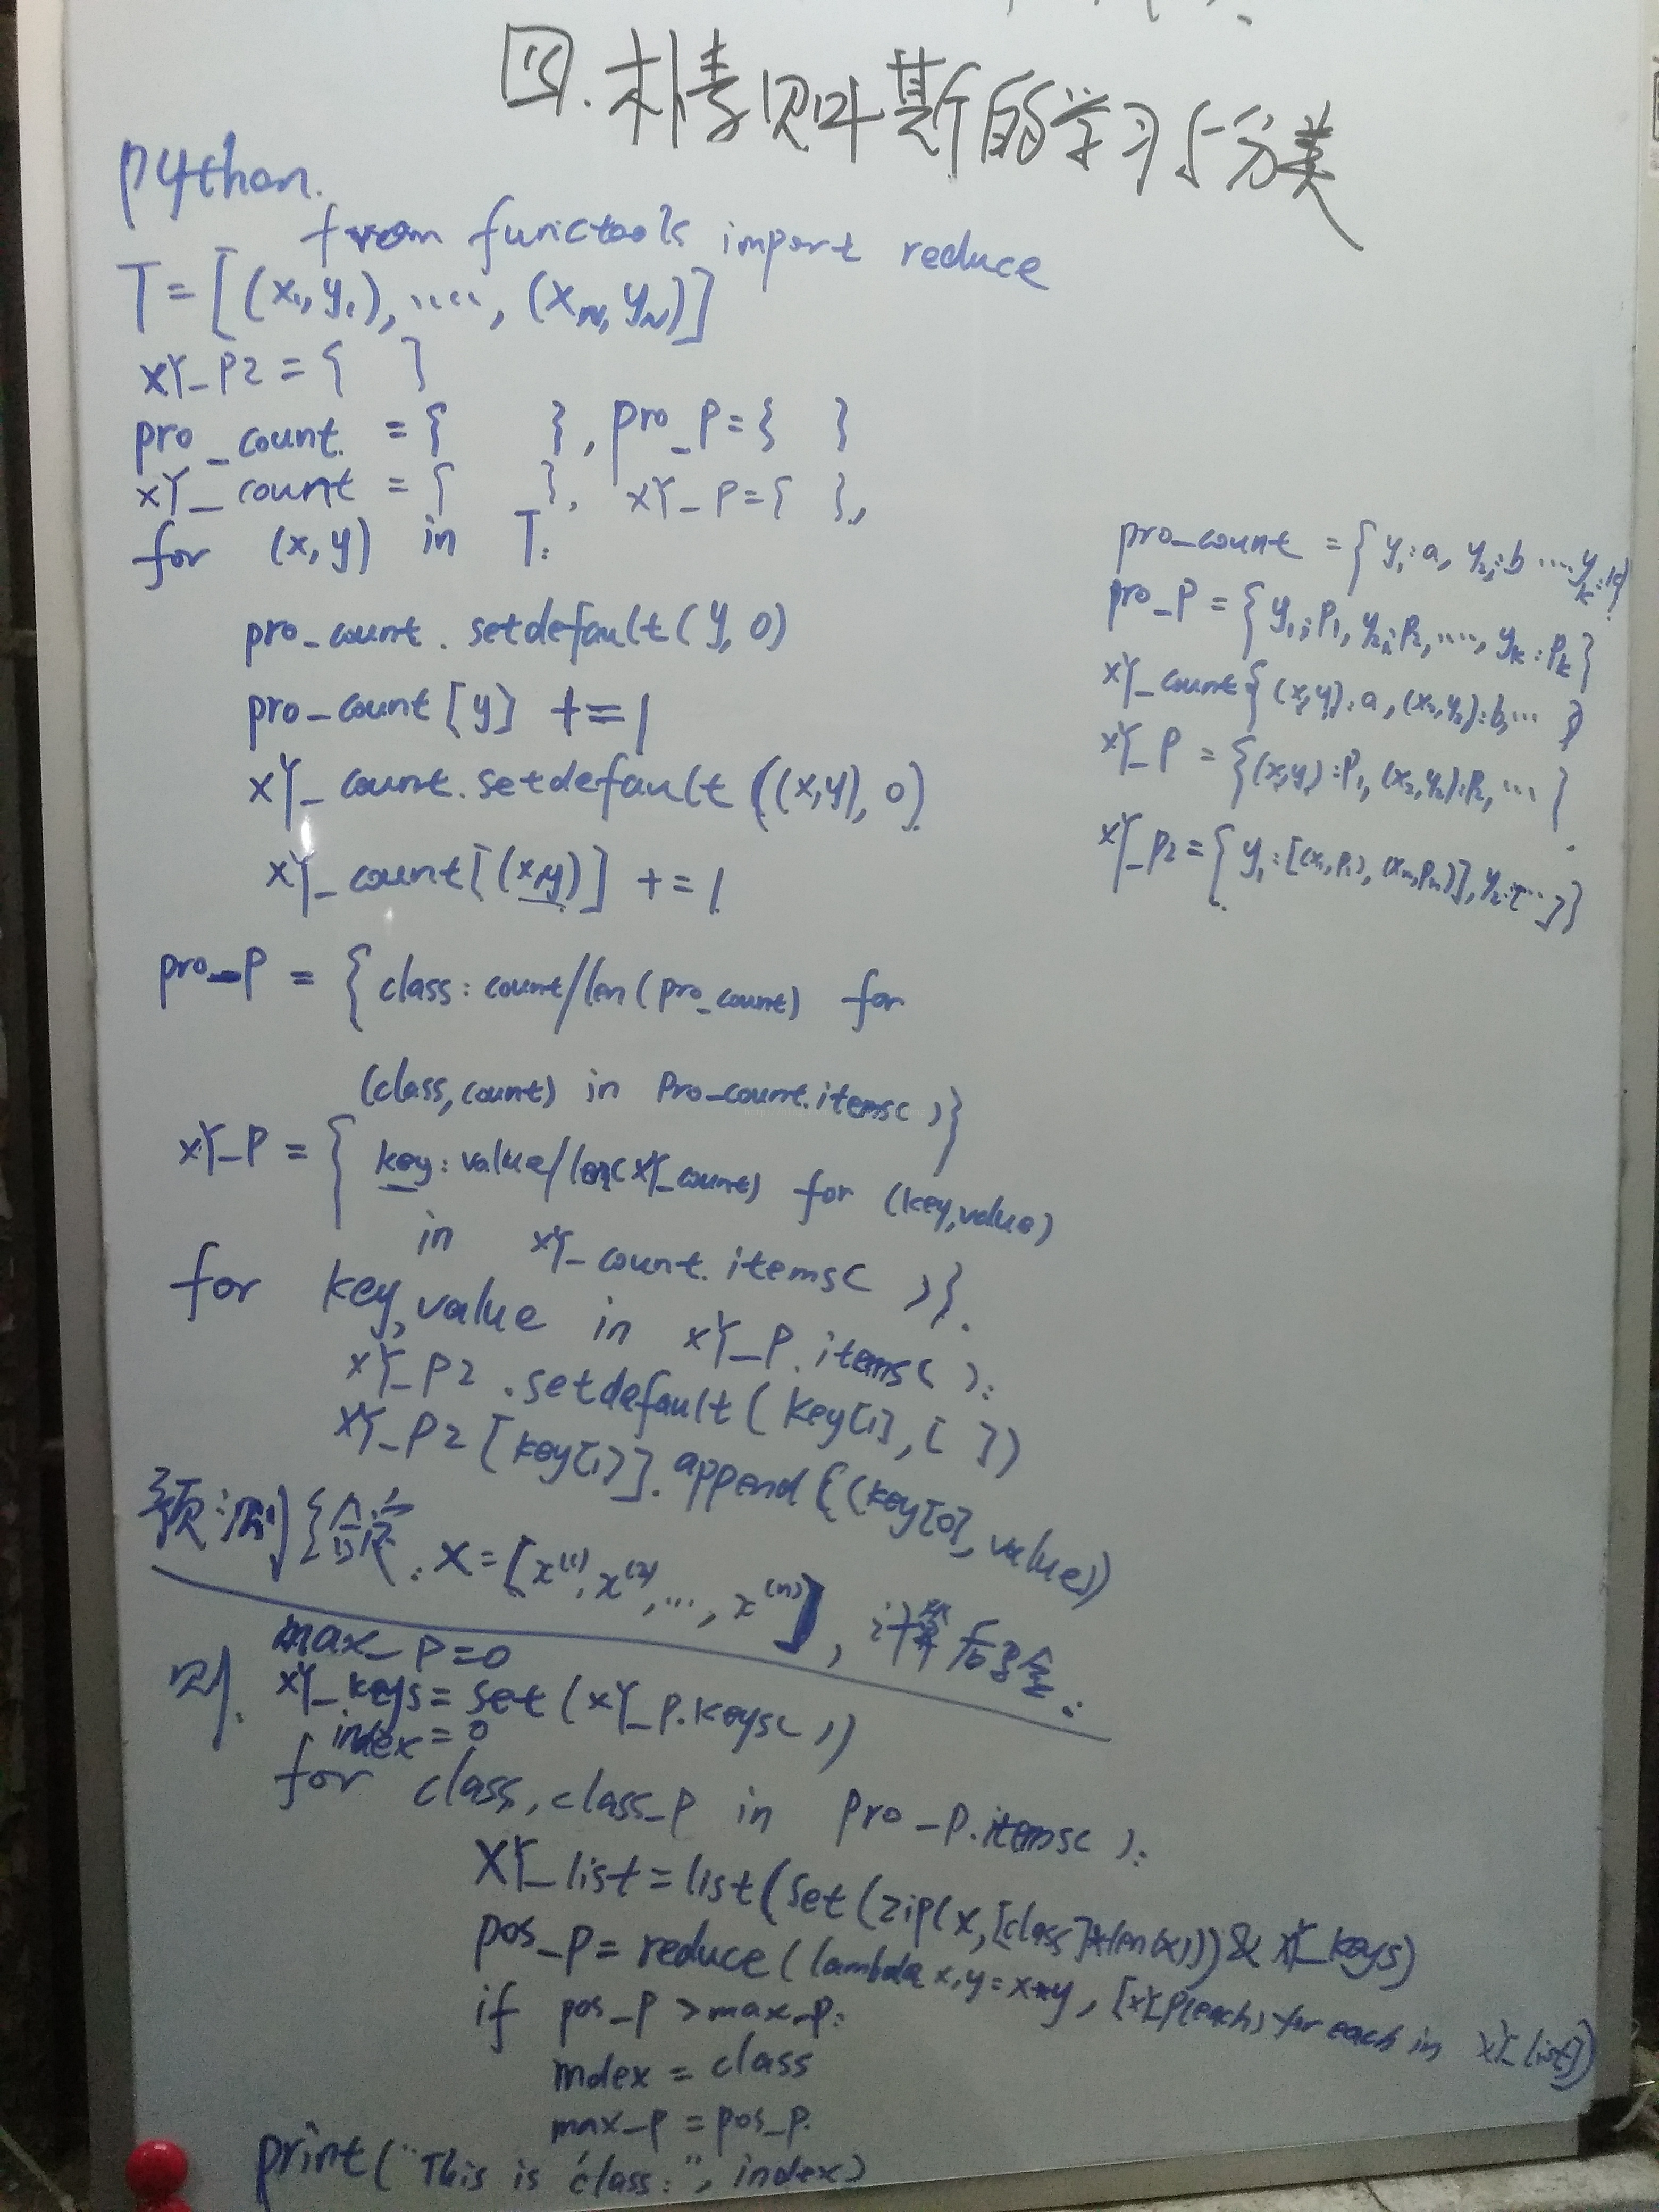 四.朴素贝叶斯的学习与分类
python.
from functools import reduce
T=[(x₁,y₁),....,(x_N,y_N)]
xY_P2={ }
pro_count ={ }, pro_P={ }
xY_count ={ }, xY_P={ },
for (x,y) in T:
pro_count.setdefault(y,0)
pro_count[y] +=1
xY_count.setdefault((x,y),0)
xY_count[(x,y)] +=1
pro_P = {class:count/len(pro_count) for
(class,count) in Pro_count.items()}
xY_P={key:value/len(xY_count) for (key,value)
in xY_count.items()}.
for key,value in xY_P.items():
xY_P2.setdefault(key[1],[ ])
xY_P2[key[1]].append((key[0],value))
预测 : X=[x⁽¹⁾,x⁽²⁾,...,x⁽ⁿ⁾],计算后
max_P=0
则. xY_keys=set(xY_P.keys())
index=0
for class,class_P in pro_P.items():
XY_list=list(set(zip(x,[class]*len(x)))&xY_keys)
pos_P=reduce(lambda x,y=x*y,[xY_P(each) for each in xY_list])
if pos_P>max_P:
index=class
max_P=pos_P.
print("This is class:",index)
pro_count={y₁:a,y₂:b....y_k:
pro_P={y₁:P₁,y₂:P₂,....,y_k:P_k}
xY_count{(x,y):a,(x₂,y₂):b,... }
xY_P={(x,y):P₁,(x₂,y₂):P₂,... }
xY_P2={y₁:[(x₁,P₁),(x_n,P_n)],y₂:[...]}